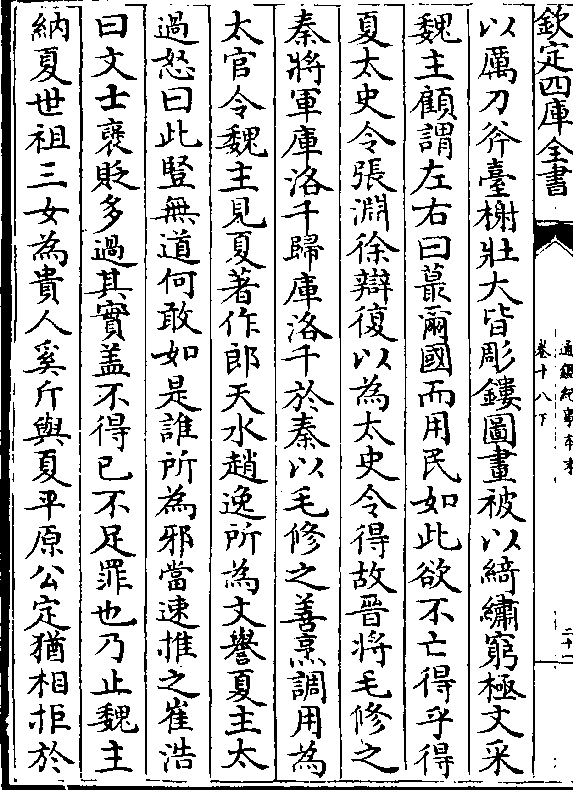 欽定四庫全書
通鑑紀事本末
卷十八下
二十二
以厲刀斧臺榭壯大皆彫鏤圖畫被以綺繡窮極文采
魏主顧謂左右曰蕞爾國而用民如此欲不亡得乎得
夏太史令張淵徐辯復以為太史令得故晉將毛修之
秦將軍庫洛干歸庫洛干於秦以毛修之善烹調用為
太官令魏主見夏著作郎天水趙逸所為文譽夏主太
過怒曰此豎無道何敢如是誰所為邪當速推之崔浩
曰文士褒貶多過其實蓋不得已不足罪也乃止魏主
納夏世祖三女為貴人奚斤與夏平原公定猶相拒於